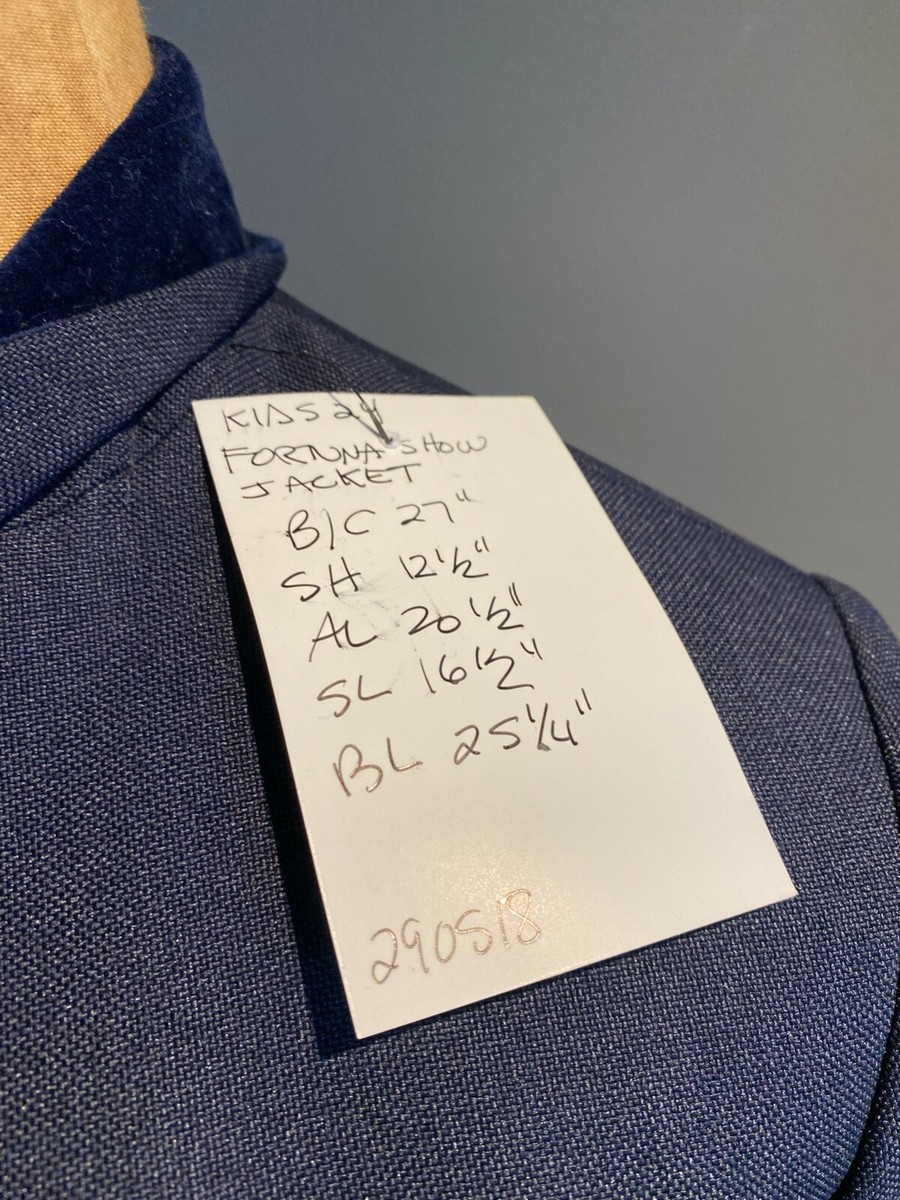 KIDS 24
FORTUNA SHOW
JACKET
B/C 27"
SH 12 1/2"
AL 20 1/2"
SL 16 1/2"
BL 25 1/4"
290518